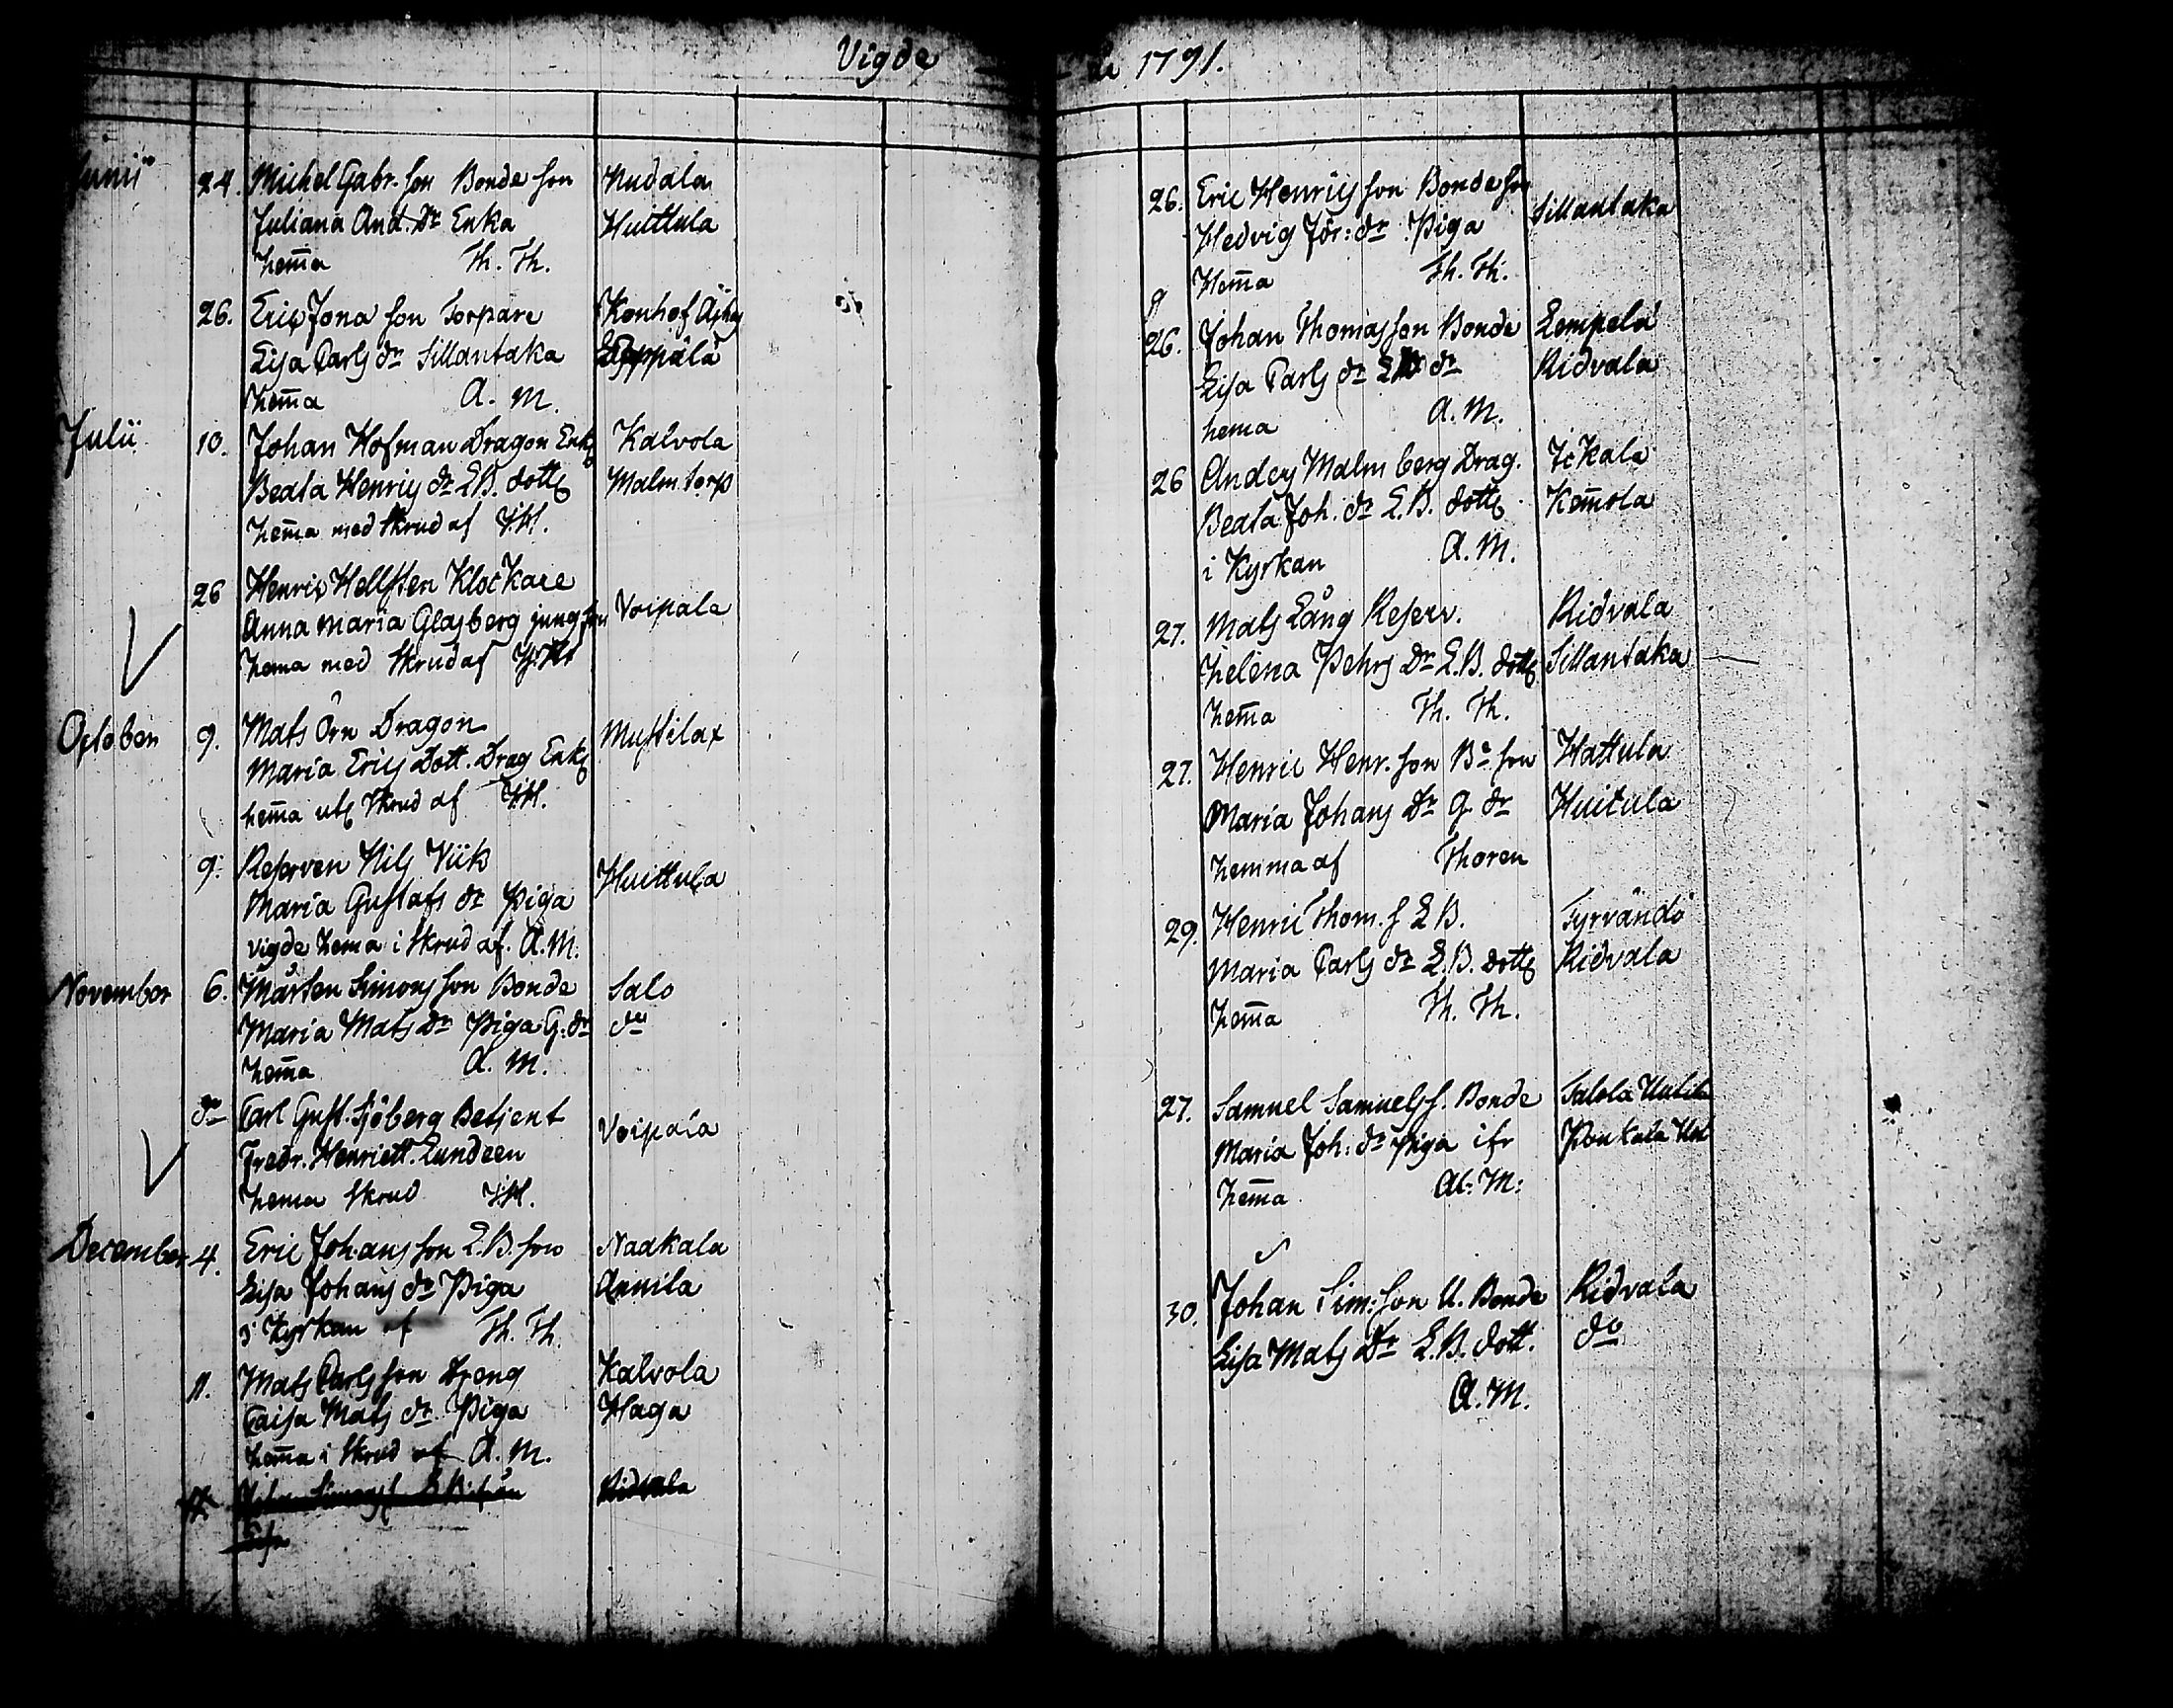 Vigde
Junii 24. Michel Gabr. son Bonde son Nudala
Juliana And. Dr Enka Huittula
hem̄a Th. Th.
26. Eric Jona son Torpare Konhof
Lisa Carls dr Sillantaka Leppälä
hem̄a A. M.
Julii 10. Johan Hofman Dragon Enkl Kalvola
Beata Henrics dr L.B. dottr Malmtorp
hem̄a med skrud af
26 Henric Hellsten Klockare
Anna Maria Glasberg jungfru Voipala
hema med skrud af
October 9. Mats Örn Dragon Mustilax
Maria Erics Dott. Drag Enka
hem̄a utj skrud af
9: Reserven Nils Viik Huittula
Maria Gustafs dr Piga
vigde hema i skrud af. A.M.
November 6. Mårten Simons son Bonde Salo
Maria Mats dr Piga G. dr do
hem̄a A. M.
do Carl Gust. Sjöberg Betjent Voipala
Fredr. Henriett. Lundeen
hema skrud
December 4. Eric Johans son L.B. son Naakala
Lisa Johans dr Piga Annila
i Kyrkan af Th. Th.
11. Mats Carls son Dreng Kalvola
Caisa Mats dr Piga Haga
hem̄a i skrud af A. M.
Ridvala
Lisa
de 1791.
26. Eric Henrics son Bonde son Sillantaka
Hedvig Jör: dr Piga
Hem̄a Th. Th.
26. Johan Thomas son Bonde Lempelä
Lisa Carls dr dr Ridvala
hema A. M.
26 Anders Malmberg Drag. Ickala
Beata Joh. dr L.B. dottr Kem̄ola
i Kyrkan A. M.
27. Mats Lång Reserv. Ridvala
Helena Pehrs Dr L.B. dottr Sillantaka
hem̄a Th. Th.
27. Henric Henr. son Be son Hattula
Maria Johans Dr G. dr Huitula
hemma af Thoren
29. Henric Thom. s L B. Tyrvändö
Maria Carls dr L.B. dottr Ridvala
hem̄a Th. Th.
27. Samuel Samuels s. Bonde Talola
Maria Joh: dr Piga ifr
hem̄a Al: M:
30. Johan Sim: son U. Bonde Ridvala
Lisa Mats Dr L.B. dott. do
A. M.